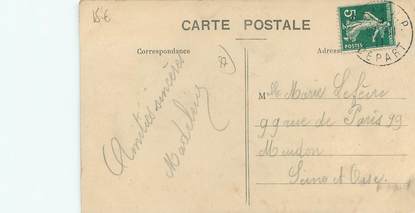 15 €
CARTE POSTALE
Correspondance
Adresse
5c
POSTES
DÉPART
Amitiés sincères
Madeleine
Mlle Marie Lefèvre
99 rue de Paris 99
Meudon
Seine et Oise